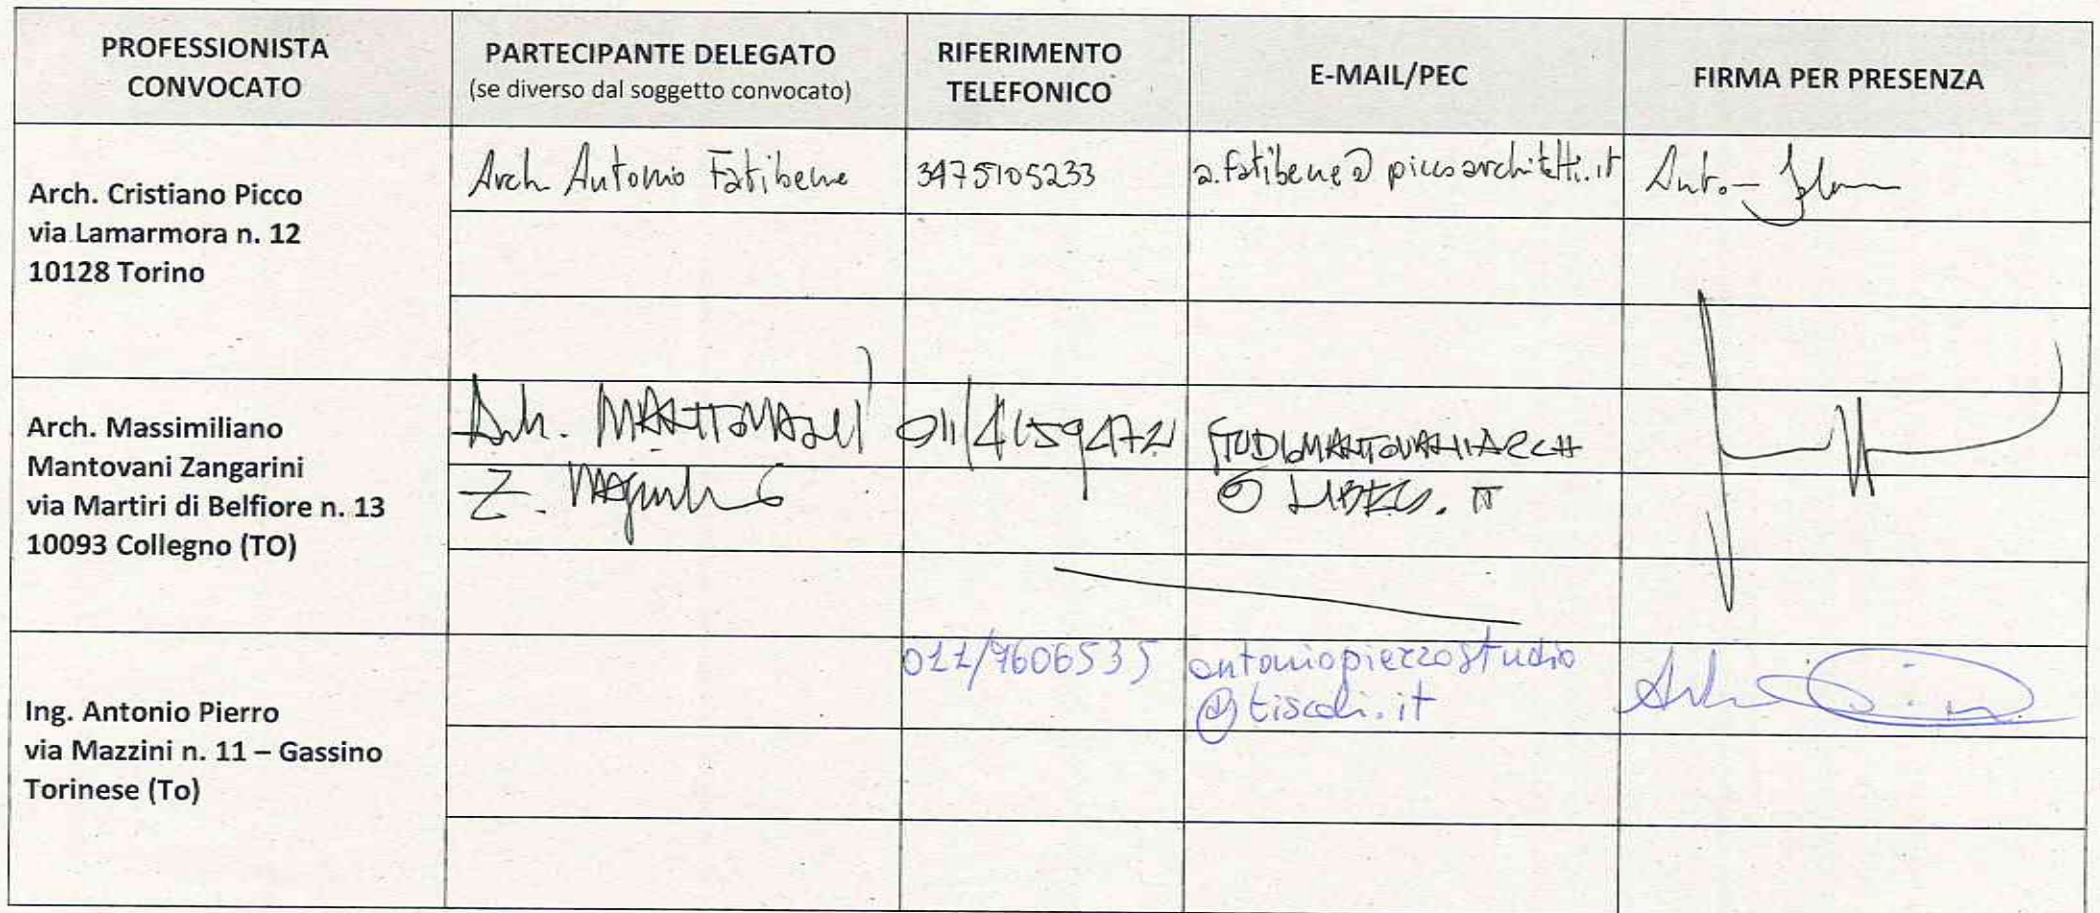 PROFESSIONISTA
CONVOCATO
PARTECIPANTE DELEGATO
(se diverso dal soggetto convocato)
RIFERIMENTO
TELEFONICO
E-MAIL/PEC
FIRMA PER PRESENZA
Arch. Cristiano Picco
via Lamarmora n. 12
10128 Torino
Arch Antonio Fatibene
3475105233
a.fatibene@piccoarchitetti.it
Arch. Massimiliano
Mantovani Zangarini
via Martiri di Belfiore n. 13
10093 Collegno (TO)
Arch. MANTOVANI
Z.
011/4159472
STUDIOMANTOVANIARCH
@ LIBERO.IT
Ing. Antonio Pierro
via Mazzini n. 11 – Gassino
Torinese (To)
011/9606535
antoniopierrostudio
@tiscali.it